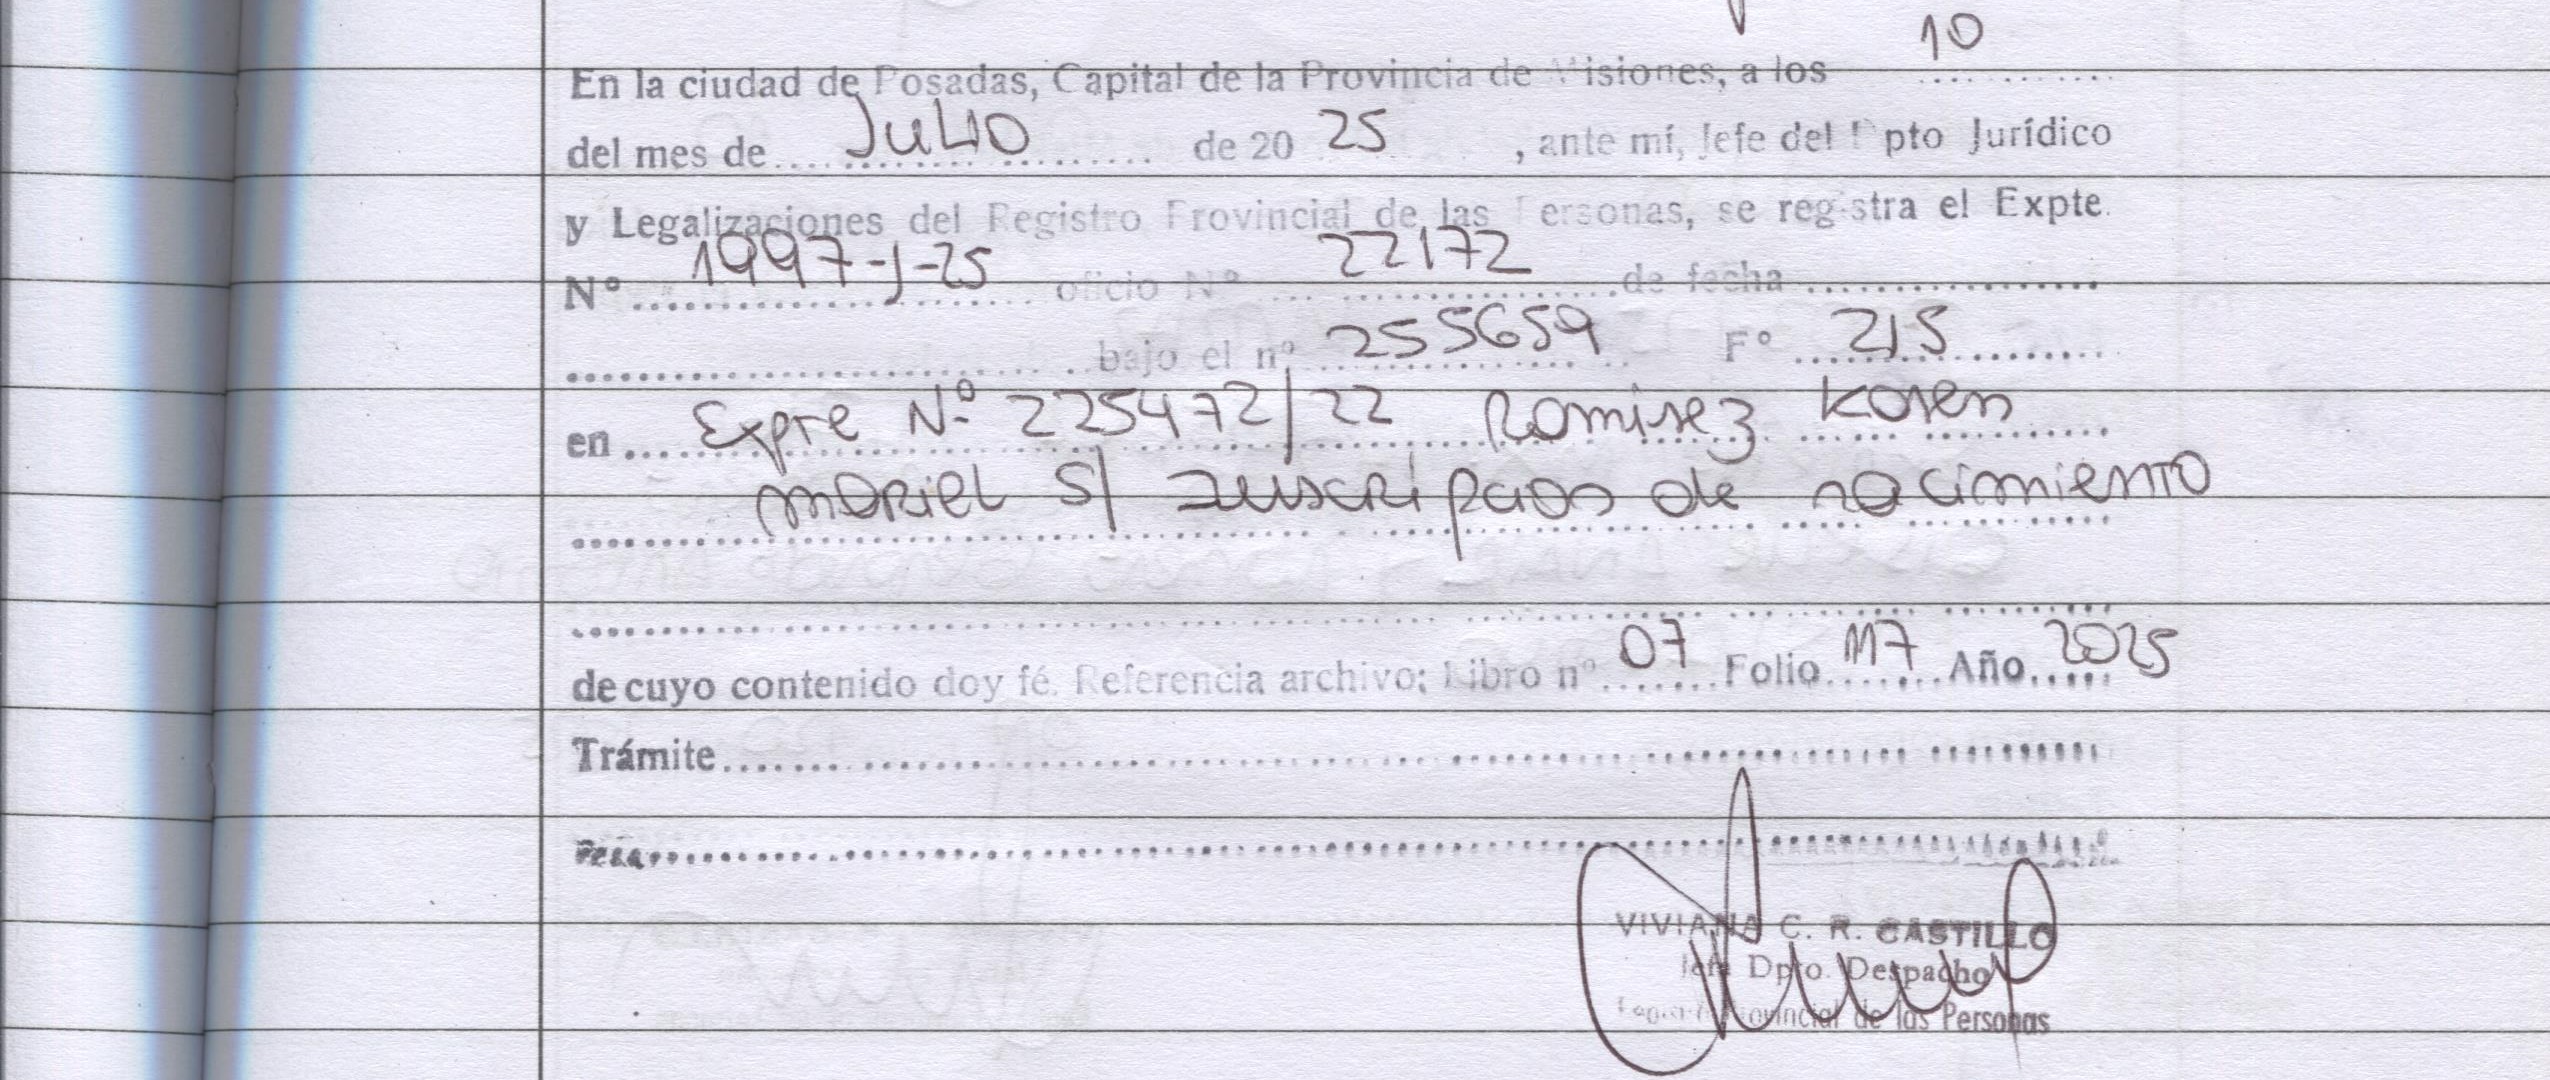 10
En la ciudad de Posadas, Capital de la Provincia de Misiones, a los ..........
del mes de .... JULIO .......... de 20 25 , ante mí, Jefe del Dpto Jurídico
y Legalizaciones del Registro Provincial de las Personas, se registra el Expte.
N° 1997-J-25 oficio N° 22172 de fecha ..................
.................... bajo el n° 255659 F° 215
en Expte N° 225472/22 Ramirez Karen
Mariel S/ Inscripcion de nacimiento
..................................................
de cuyo contenido doy fé. Referencia archivo; Libro n° 07 Folio 117 Año 2025
Trámite ..................................................
VIVIANA C. R. CASTILLO
Jefa Dpto. Despacho
Registro Provincial de las Personas